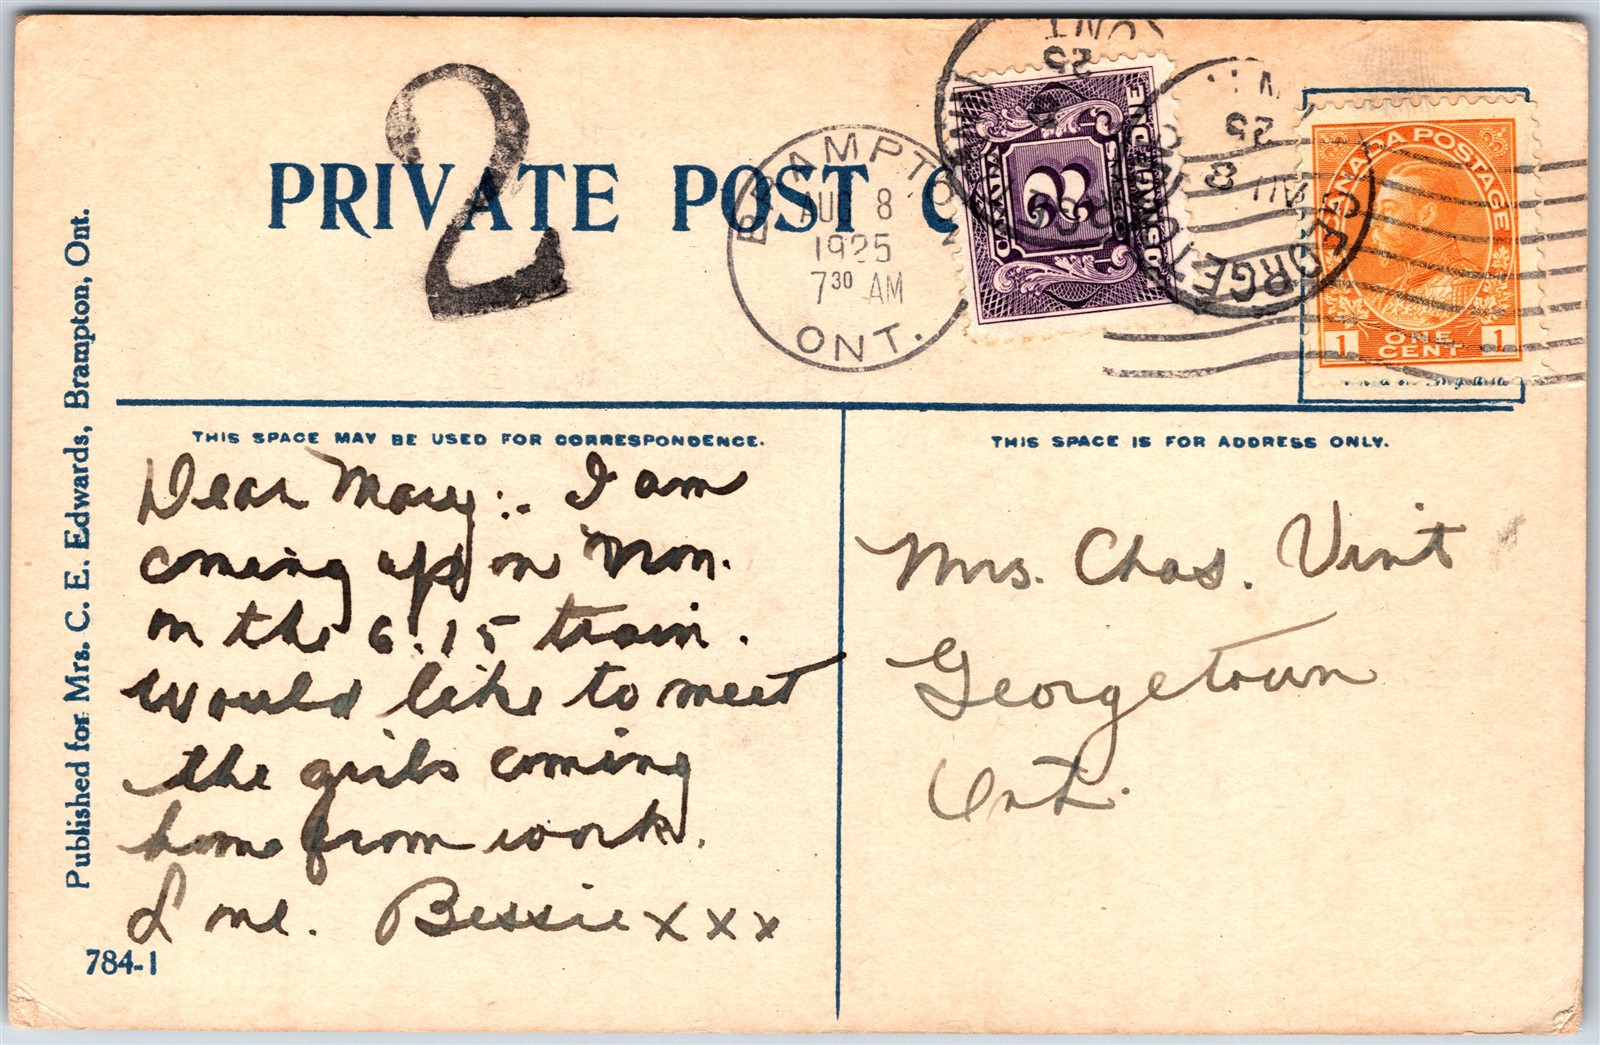 PRIVATE POST C
2
BRAMPTON
AUG 8
1925
7 30 AM
ONT.
CANADA
2
POSTAGE DUE
ONT
25
GEORGETOWN
AU 8
25
CANADA POSTAGE
1 ONE CENT 1
THIS SPACE MAY BE USED FOR CORRESPONDENCE.
Dear Mary:- I am
coming up on Mon.
on the 6.15 train.
Would like to meet
the girls coming
home from work.
Love. Bessie xxx
784-1
THIS SPACE IS FOR ADDRESS ONLY.
Mrs. Chas. Vint
Georgetown
Ont.
Published for Mrs. C. E. Edwards, Brampton, Ont.